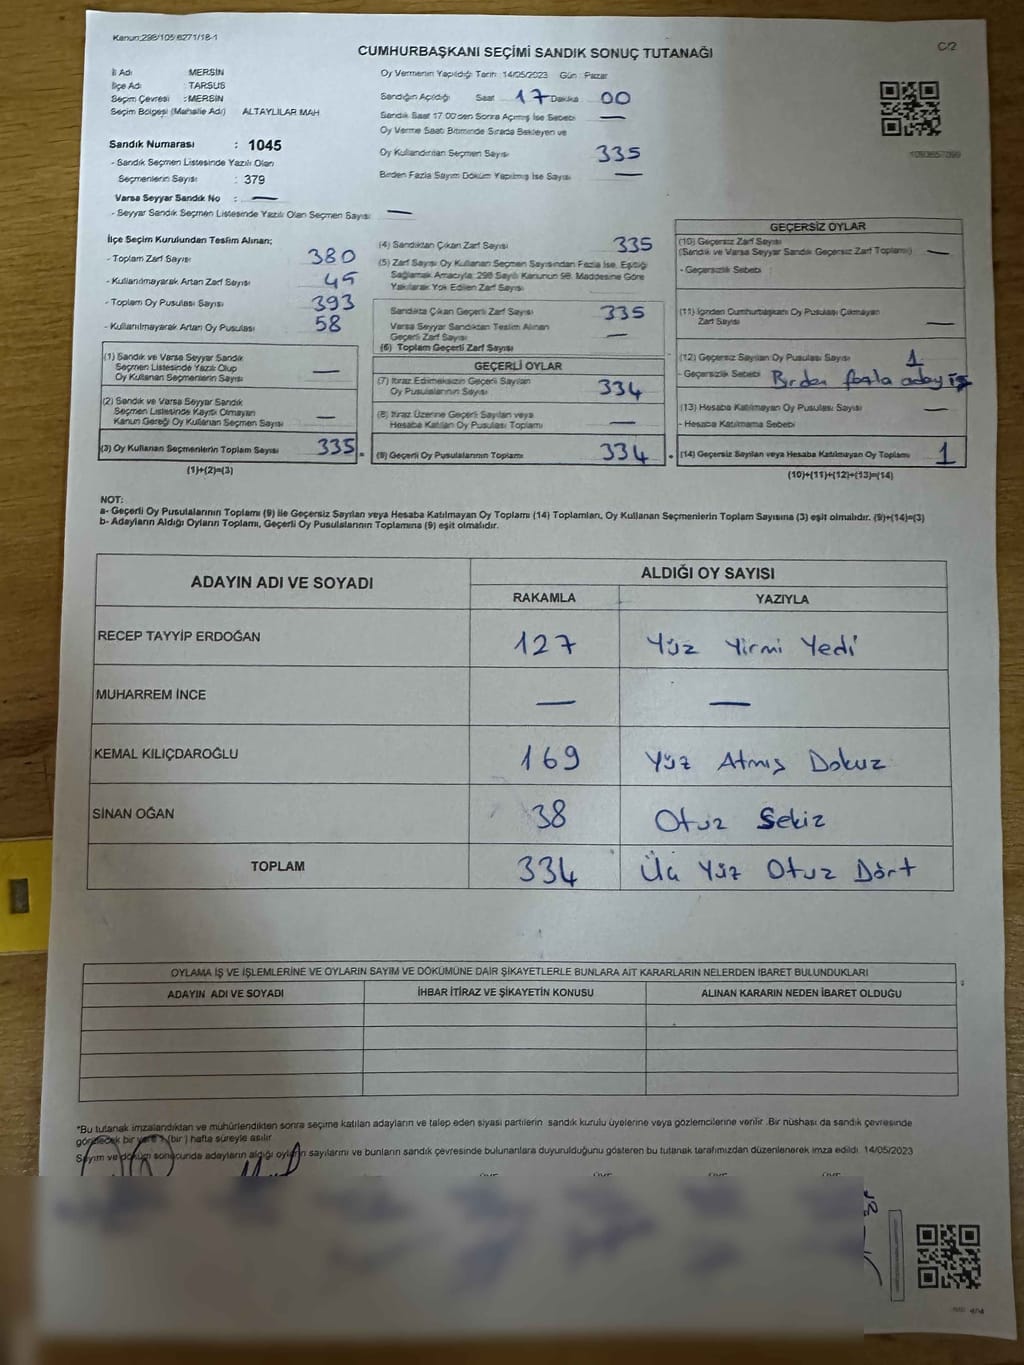 Kanun:298/105 6271/18-1
C/2
CUMHURBAŞKANI SEÇİMİ SANDIK SONUÇ TUTANAĞI
İl Adı : MERSİN
İlçe Adı : TARSUS
Seçim Çevresi : MERSİN
Seçim Bölgesi (Mahalle Adı) ALTAYLILAR MAH
Sandık Numarası : 1045
- Sandık Seçmen Listesinde Yazılı Olan
Seçmenlerin Sayısı : 379
Varsa Seyyar Sandık No : —
- Seyyar Sandık Seçmen Listesinde Yazılı Olan Seçmen Sayısı —
Oy Vermenin Yapıldığı Tarih : 14/05/2023 Gün : Pazar
Sandığın Açıldığı Saat 17 Dakika 00
Sandık Saat 17 00'den Sonra Açılmış İse Sebebi —
Oy Verme Saati Bitiminde Sırada Bekleyen ve
Oy Kullandırılan Seçmen Sayısı 335
Birden Fazla Sayım Döküm Yapılmış İse Sayısı —
İlçe Seçim Kurulundan Teslim Alınan;
- Toplam Zarf Sayısı 380
- Kullanılmayarak Artan Zarf Sayısı 45
- Toplam Oy Pusulası Sayısı 393
- Kullanılmayarak Artan Oy Pusulası 58
(1) Sandık ve Varsa Seyyar Sandık
Seçmen Listesinde Yazılı Olup
Oy Kullanan Seçmenlerin Sayısı —
(2) Sandık ve Varsa Seyyar Sandık
Seçmen Listesinde Kayıtlı Olmayan
Kanun Gereği Oy Kullanan Seçmen Sayısı —
(3) Oy Kullanan Seçmenlerin Toplam Sayısı 335
(1)+(2)=(3)
(4) Sandıktan Çıkan Zarf Sayısı 335
(5) Zarf Sayısı Oy Kullanan Seçmen Sayısından Fazla İse, Eşitliği
Sağlamak Amacıyla 298 Sayılı Kanunun 98. Maddesine Göre
Yakılarak Yok Edilen Zarf Sayısı
Sandıkta Çıkan Geçerli Zarf Sayısı 335
Varsa Seyyar Sandıktan Teslim Alınan
Geçerli Zarf Sayısı —
(6) Toplam Geçerli Zarf Sayısı
GEÇERLİ OYLAR
(7) İtiraz Edilmeksizin Geçerli Sayılan
Oy Pusulasının Sayısı 334
(8) İtiraz Üzerine Geçerli Sayılan veya
Hesaba Katılan Oy Pusulası Toplamı —
(9) Geçerli Oy Pusulalarının Toplamı 334
GEÇERSİZ OYLAR
(10) Geçersiz Zarf Sayısı
(Sandık ve Varsa Seyyar Sandık Geçersiz Zarf Toplamı) —
- Geçersizlik Sebebi
(11) İçinden Cumhurbaşkanı Oy Pusulası Çıkmayan
Zarf Sayısı —
(12) Geçersiz Sayılan Oy Pusulası Sayısı 1
- Geçersizlik Sebebi Birden fazla aday iş
(13) Hesaba Katılmayan Oy Pusulası Sayısı —
- Hesaba Katılmama Sebebi
(14) Geçersiz Sayılan veya Hesaba Katılmayan Oy Toplamı 1
(10)+(11)+(12)+(13)=(14)
NOT:
a- Geçerli Oy Pusulalarının Toplamı (9) ile Geçersiz Sayılan veya Hesaba Katılmayan Oy Toplamı (14) Toplamları, Oy Kullanan Seçmenlerin Toplam Sayısına (3) eşit olmalıdır. (9)+(14)=(3)
b- Adayların Aldığı Oyların Toplamı, Geçerli Oy Pusulalarının Toplamına (9) eşit olmalıdır.
ADAYIN ADI VE SOYADI
ALDIĞI OY SAYISI
RAKAMLA YAZIYLA
RECEP TAYYİP ERDOĞAN 127 Yüz Yirmi Yedi
MUHARREM İNCE — —
KEMAL KILIÇDAROĞLU 169 Yüz Atmış Dokuz
SİNAN OĞAN 38 Otuz Sekiz
TOPLAM 334 Üç Yüz Otuz Dört
OYLAMA İŞ VE İŞLEMLERİNE VE OYLARIN SAYIM VE DÖKÜMÜNE DAİR ŞİKAYETLERLE BUNLARA AİT KARARLARIN NELERDEN İBARET BULUNDUKLARI
ADAYIN ADI VE SOYADI İHBAR İTİRAZ VE ŞİKAYETİN KONUSU ALINAN KARARIN NEDEN İBARET OLDUĞU
*Bu tutanak imzalandıktan ve mühürlendikten sonra seçime katılan adayların ve talep eden siyasi partilerin sandık kurulu üyelerine veya gözlemcilerine verilir. Bir nüshası da sandık çevresinde
görülecek bir yere 1 (bir) hafta süreyle asılır
Sayım ve döküm sonucunda adayların aldığı oyların sayılarını ve bunların sandık çevresinde bulunanlara duyurulduğunu gösteren bu tutanak tarafımızdan düzenlenerek imza edildi. 14/05/2023